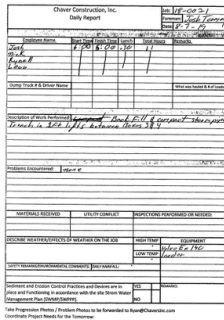 Chaver Construction, Inc.
Daily Report
Job: 18-00-21
Foreman: Josh
Date: 8-7-19
Employee Name Start Time Finish Time Lunch Total Hours Remarks
Josh 6:00 5:00 .10 11
Rick
Russell
Leon
Dump Truck # & Driver Name
What was hauled & # of Loads
Description of Work Performed Back Fill & compact storm pipe
Trench in 2FT lifts between 3 & 4
Problems Encountered: none
MATERIALS RECEIVED UTILITY CONFLICT INSPECTIONS PERFORMED OR NEEDED:
DESCRIBE WEATHER/EFFECTS OF WEATHER ON THE JOB HIGH TEMP EQUIPMENT
LOW TEMP loader
SAFETY REMARKS/ENVIRONMENTAL COMMENTS DAILY RAINFALL:
Sediment and Erosion Control Practices and Devices are in YES REMARKS:
place and Functioning in accordance with the site Strom Water
Management Plan (SWMP/SWPPP). NO
Take Progression Photos / Problem Photos to be forwarded to Ryan@Chaversinc.com
Coordinate Project Needs for the Tomorrow: